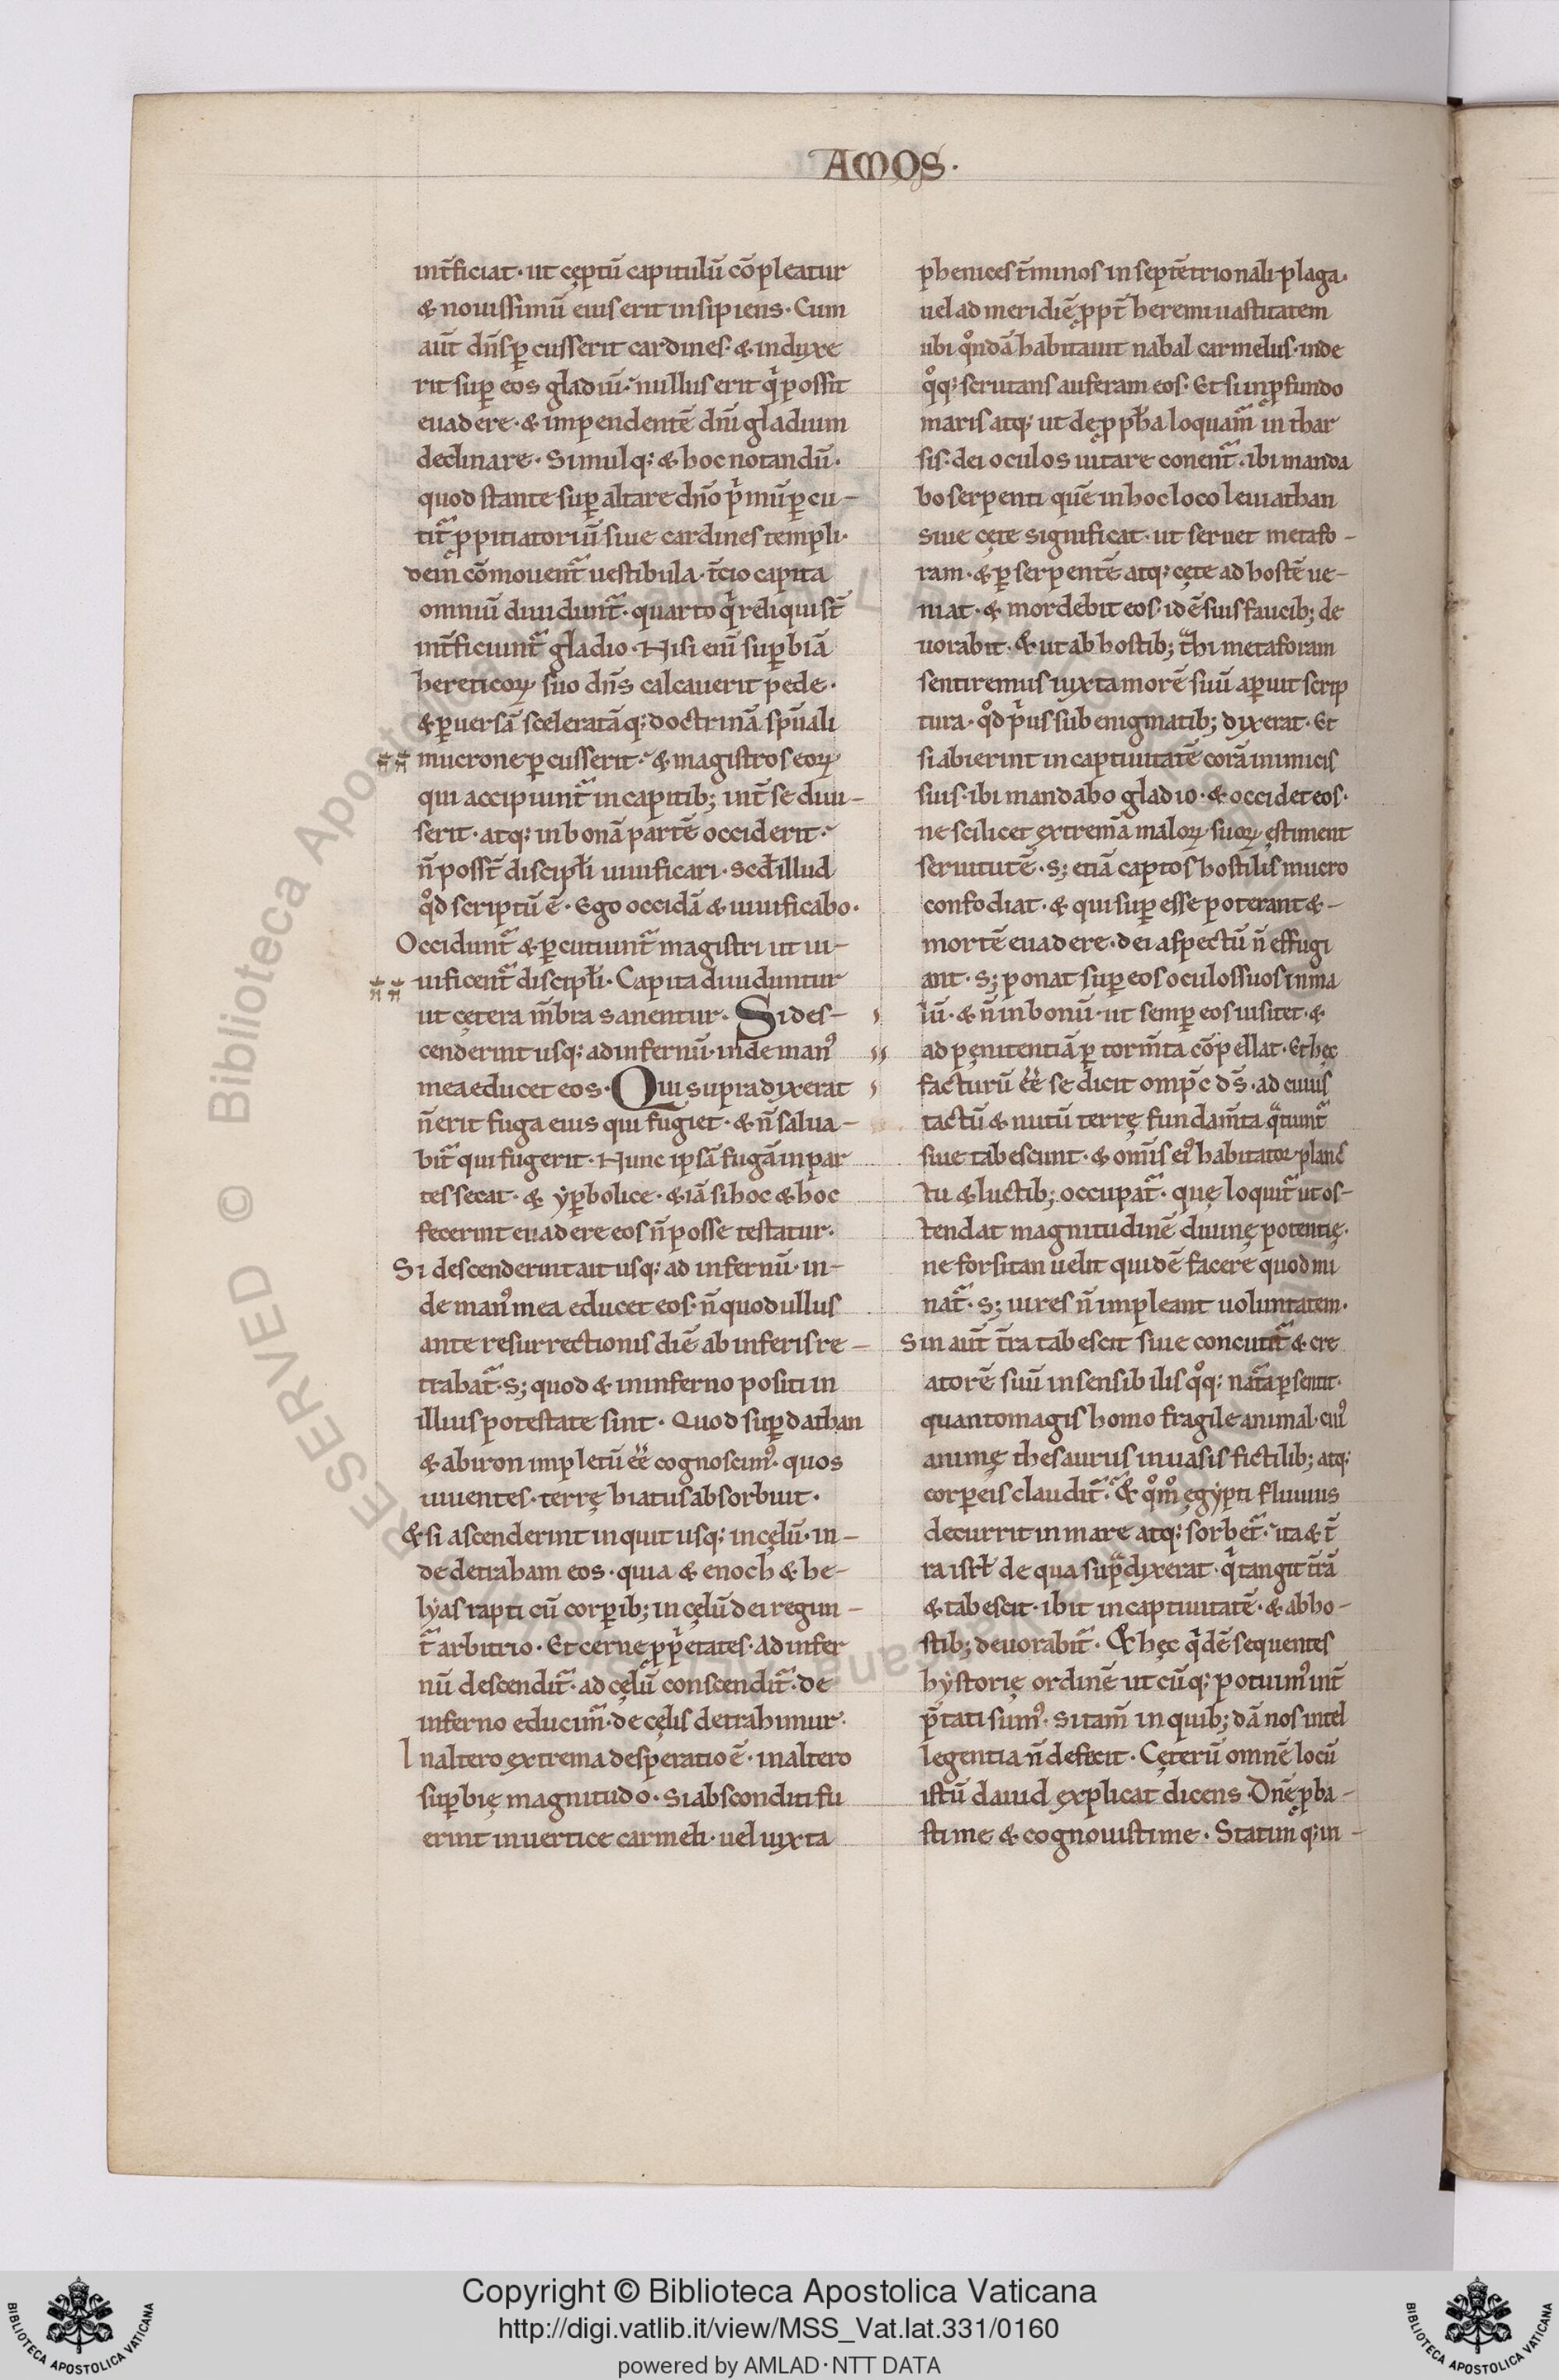 AMOS·
int̄ficiat· ut cęptū capitulū cōpleatur
& nouissimū eius erit insipiens· Cum
aūt dn̄s ꝑcusserit cardines· & induxe
rit suꝑ eos gladiū· nullus erit qͥ possit
euadere· & impendentē dn̄i gladium
declinare· Simulq; & hoc notandū·
quod stante suꝑ altare dn̄o pͥmū ꝑcu-
tit᷑ ꝓpitiatoriū siue cardines templi·
dein̄ cōmouent᷑ uestibula· t̄cio capita
omniū diuidunt᷑· quarto qͥ reliqui st̄
int̄ficiunt᷑ gladio· Nisi eni̅ suꝑbiā
hereticoꝝ suo dn̄s calcauerit pede·
& ꝑuersā sceleratāq; doctrinā sp̄uali
mucrone ꝑcusserit· & magistros eoꝝ
qui accipiunt᷑ in capitib; int̄ se diui-
serit· atq; in bonā partē occiderit·
n̄ posst̄ discipl̄i uiuificari· sed illud
qͦd scriptū ē· Ego occidā & uiuificabo·
Occidunt᷑ & ꝑcutiunt᷑ magistri ut ui-
uificent᷑ discipl̄i· Capita diuiduntur
ut cętera m̄bra sanentur· Si des-
cenderint usq; ad infernū· inde manꝰ
mea educet eos· Qui supra dixerat
n̄ erit fuga eius qui fugiet· & n̄ salua-
bit᷑ qui fugerit· Nunc ipsā fugā in par
tes secat· & ẏꝑbolice· & iā si hoc & hoc
fecerint euadere eos n̄ posse testatur·
Si descenderint ait usq; ad infernū· in-
de manꝰ mea educet eos· n̄ quod ullus
ante resurrectionis diē ab inferis re-
trahat᷑· s; quod & in inferno positi in
illius potestate sint· Quod suꝑ dathan
& abiron impletū ēē cognoscimꝰ· quos
uiuentes· terrę hiatus absorbuit·
& si ascenderint inquit usq; in cęlū· in-
de detraham eos· quia & enoch & he-
lẏas rapti cū corꝑib; in cęlū dei regun-
t᷑ arbitrio· Et cerne ꝓpͥetates· Ad infer
nū descendit᷑· ad cęlū conscendit᷑· de
inferno educim᷑· de cęlis detrahimur·
In altero extrema desꝑatio ē· in altero
suꝑbię magnitudo· Si absconditi fu
erint in uertice carmeli· uel iuxta
phenices t̄minos in septētrionali plaga·
uel ad meridiē ꝓpt̄ heremi uastitatem
ubi qͦndā habitauit nabal carmelus· inde
qͦq; scrutans auferam eos· Et si in ꝓfundo
maris atq; ut de ꝓph̄a loquam᷑ in thar
sis· dei oculos uitare conent᷑· ibi manda
bo serpenti quē in hoc loco leuiathan
siue cęte significat· ut seruet metafo-
ram· & ꝑ serpentē atq; cęte ad hostē ue-
niat· & mordebit eos· id ē suis faucib; de
uorabit· & ut ab hostib; tͣhi metaforam
sentiremus iuxta morē suū aꝑuit scrip
tura· qͦd pͥus sub enigmatib; dixerat· Et
si abierint in captiuitatē corā inimicis
suis· ibi mandabo gladio· & occidet eos·
ne scilicet extrema maloꝝ suoꝝ ęstiment
seruitutē· s; etiā captos hostilis mucro
confodiat· & qui suꝑesse poterant &-
mortē euadere· dei aspectū n̄ effugi
ant· s; ponat suꝑ eos oculos suos in ma
lū· & n̄ in bonū· ut semꝑ eos uisitet· &
ad pęnitentiā ꝑ torm̄ta cōpellat· Et hęc
facturū ēē se dicit omp̄c ds̄· ad cuius
tactū & nutū terrę fundam̄ta qͣtiunt᷑
siue tabescunt· & om̄is eiꝰ habitator planc̄
tu & luctib; occupat᷑· quę loquit᷑ ut os-
tendat magnitudinē diuinę potentię·
ne forsitan uelit quidē facere quod mi
nat᷑· s; uires n̄ impleant uoluntatem·
Sin aūt t̄ra tabescit siue concutit᷑ & cre
atorē suū insensibilis qͦq; nat᷑a ꝑsentit·
quanto magis homo fragile animal· cuiꝰ
animę thesaurus in uasis fictilib; atq;
corꝑeis claudit᷑· & qͦm̊ ęgẏpti fluuius
decurrit in mare atq; sorbet᷑· ita & t̄
ra isrl̄ de qua supͣ dixerat· qͥ tangit t̄rā
& tabescit· ibit in captiuitatē· & ab ho-
stib; deuorabit᷑· & hęc qͥdē sequentes
hẏstorię ordinē ut cūq; potuimꝰ int̄
p̄tati sumꝰ· Si tam̄ in quib;dā nos intel
legentia n̄ defecit· Cęterū omnē locū
istū dauid explicat dicens· Dn̄e ꝓba-
sti me & cognouisti me· Statim q; in-
Copyright © Biblioteca Apostolica Vaticana
http://digi.vatlib.it/view/MSS_Vat.lat.331/0160
powered by AMLAD·NTT DATA
BIBLIOTECA APOSTOLICA VATICANA
BIBLIOTECA APOSTOLICA VATICANA